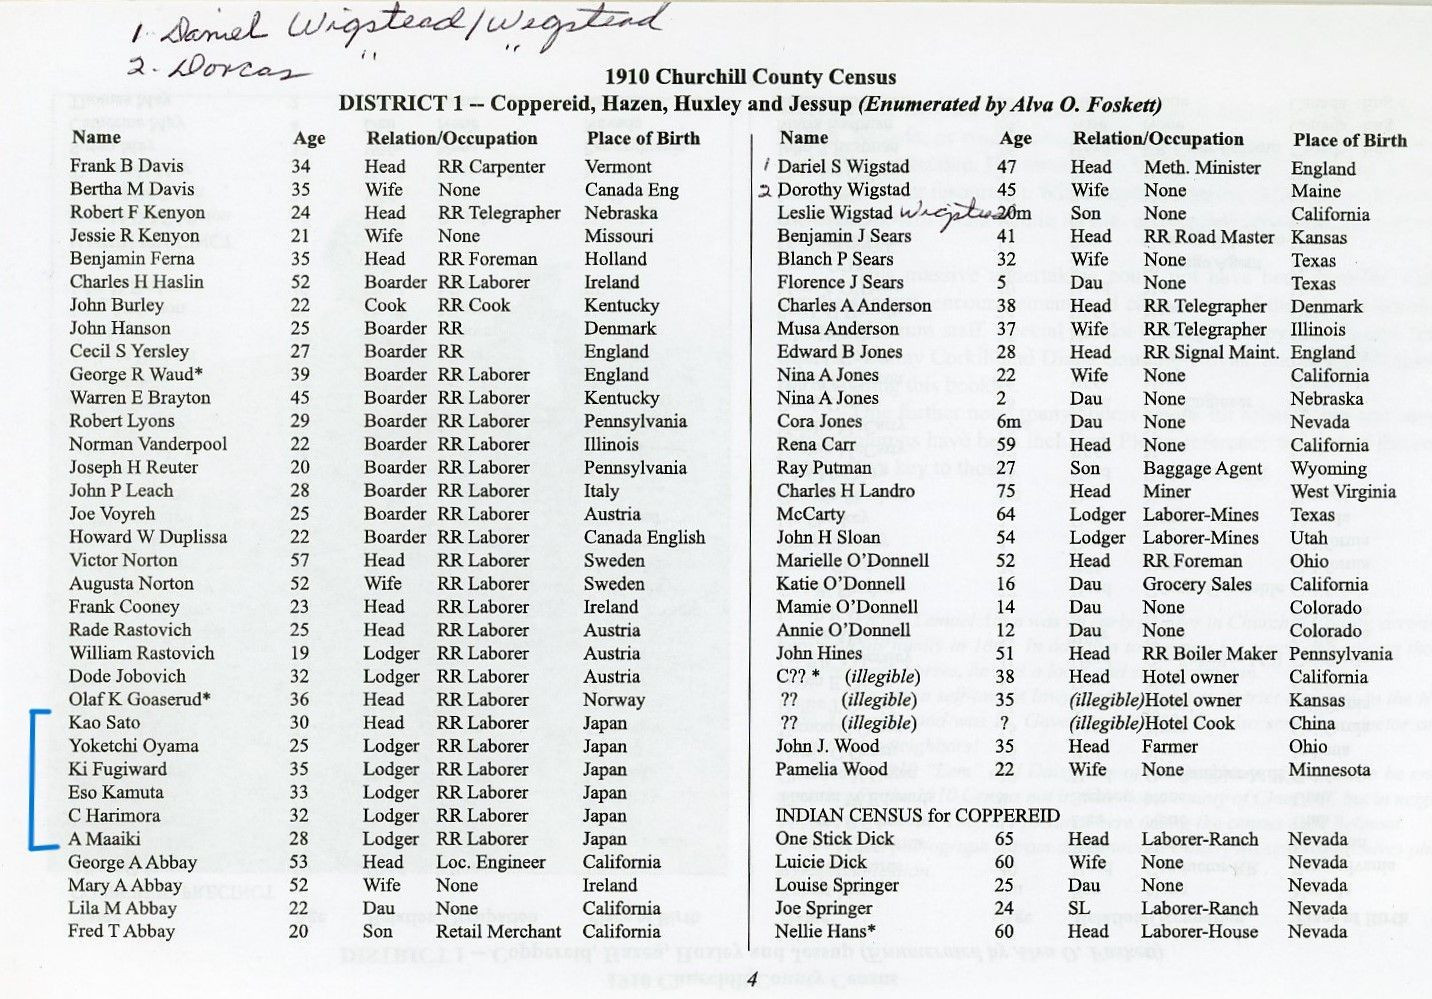 1. Daniel Wigstead/Wegstead
2. Dorcas " "
1910 Churchill County Census
DISTRICT 1 -- Coppereid, Hazen, Huxley and Jessup (Enumerated by Alva O. Foskett)
Name Age Relation/Occupation Place of Birth
Frank B Davis 34 Head RR Carpenter Vermont
Bertha M Davis 35 Wife None Canada Eng
Robert F Kenyon 24 Head RR Telegrapher Nebraska
Jessie R Kenyon 21 Wife None Missouri
Benjamin Ferna 35 Head RR Foreman Holland
Charles H Haslin 52 Boarder RR Laborer Ireland
John Burley 22 Cook RR Cook Kentucky
John Hanson 25 Boarder RR Denmark
Cecil S Yersley 27 Boarder RR England
George R Waud* 39 Boarder RR Laborer England
Warren E Brayton 45 Boarder RR Laborer Kentucky
Robert Lyons 29 Boarder RR Laborer Pennsylvania
Norman Vanderpool 22 Boarder RR Laborer Illinois
Joseph H Reuter 20 Boarder RR Laborer Pennsylvania
John P Leach 28 Boarder RR Laborer Italy
Joe Voyreh 25 Boarder RR Laborer Austria
Howard W Duplissa 22 Boarder RR Laborer Canada English
Victor Norton 57 Head RR Laborer Sweden
Augusta Norton 52 Wife RR Laborer Sweden
Frank Cooney 23 Head RR Laborer Ireland
Rade Rastovich 25 Head RR Laborer Austria
William Rastovich 19 Lodger RR Laborer Austria
Dode Jobovich 32 Lodger RR Laborer Austria
Olaf K Goaserud* 36 Head RR Laborer Norway
Kao Sato 30 Head RR Laborer Japan
Yoketchi Oyama 25 Lodger RR Laborer Japan
Ki Fugiward 35 Lodger RR Laborer Japan
Eso Kamuta 33 Lodger RR Laborer Japan
C Harimora 32 Lodger RR Laborer Japan
A Maaiki 28 Lodger RR Laborer Japan
George A Abbay 53 Head Loc. Engineer California
Mary A Abbay 52 Wife None Ireland
Lila M Abbay 22 Dau None California
Fred T Abbay 20 Son Retail Merchant California
Name Age Relation/Occupation Place of Birth
1 Dariel S Wigstad 47 Head Meth. Minister England
2 Dorothy Wigstad 45 Wife None Maine
Leslie Wigstad Wegstead 20m Son None California
Benjamin J Sears 41 Head RR Road Master Kansas
Blanch P Sears 32 Wife None Texas
Florence J Sears 5 Dau None Texas
Charles A Anderson 38 Head RR Telegrapher Denmark
Musa Anderson 37 Wife RR Telegrapher Illinois
Edward B Jones 28 Head RR Signal Maint. England
Nina A Jones 22 Wife None California
Nina A Jones 2 Dau None Nebraska
Cora Jones 6m Dau None Nevada
Rena Carr 59 Head None California
Ray Putman 27 Son Baggage Agent Wyoming
Charles H Landro 75 Head Miner West Virginia
McCarty 64 Lodger Laborer-Mines Texas
John H Sloan 54 Lodger Laborer-Mines Utah
Marielle O'Donnell 52 Head RR Foreman Ohio
Katie O'Donnell 16 Dau Grocery Sales California
Mamie O'Donnell 14 Dau None Colorado
Annie O'Donnell 12 Dau None Colorado
John Hines 51 Head RR Boiler Maker Pennsylvania
C?? * (illegible) 38 Head Hotel owner California
?? (illegible) 35 (illegible) Hotel owner Kansas
?? (illegible) ? (illegible) Hotel Cook China
John J. Wood 35 Head Farmer Ohio
Pamelia Wood 22 Wife None Minnesota
INDIAN CENSUS for COPPEREID
One Stick Dick 65 Head Laborer-Ranch Nevada
Luicie Dick 60 Wife None Nevada
Louise Springer 25 Dau None Nevada
Joe Springer 24 SL Laborer-Ranch Nevada
Nellie Hans* 60 Head Laborer-House Nevada
4